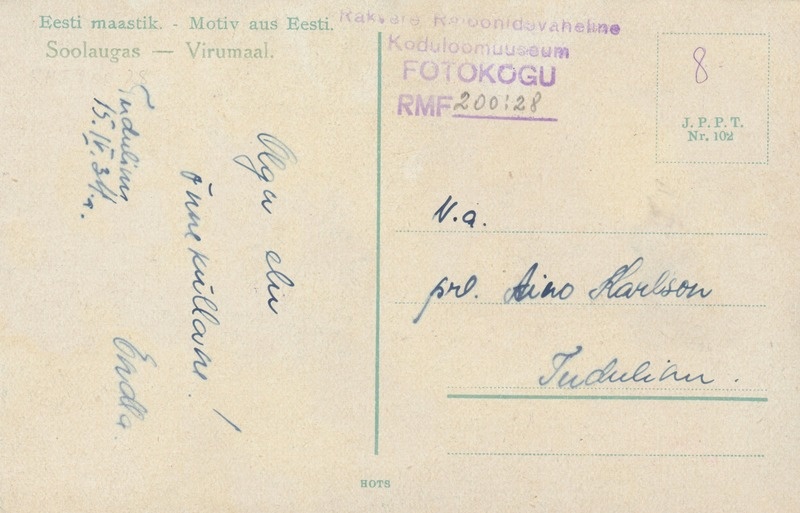 Eesti maastik. - Motiv aus Eesti.
Soolaugas — Virumaal.
Rakvere Rajoonidevaheline
Koduloomuuseum
FOTOKOGU
RMF 200:28
8
J. P. P. T.
Nr. 102
Tudulinn
15. IV. 34. a.
Olgu elu
õnneküllane!
Endla.
N.a.
prl. Aino Karlson
Tudulinn.
HOTS